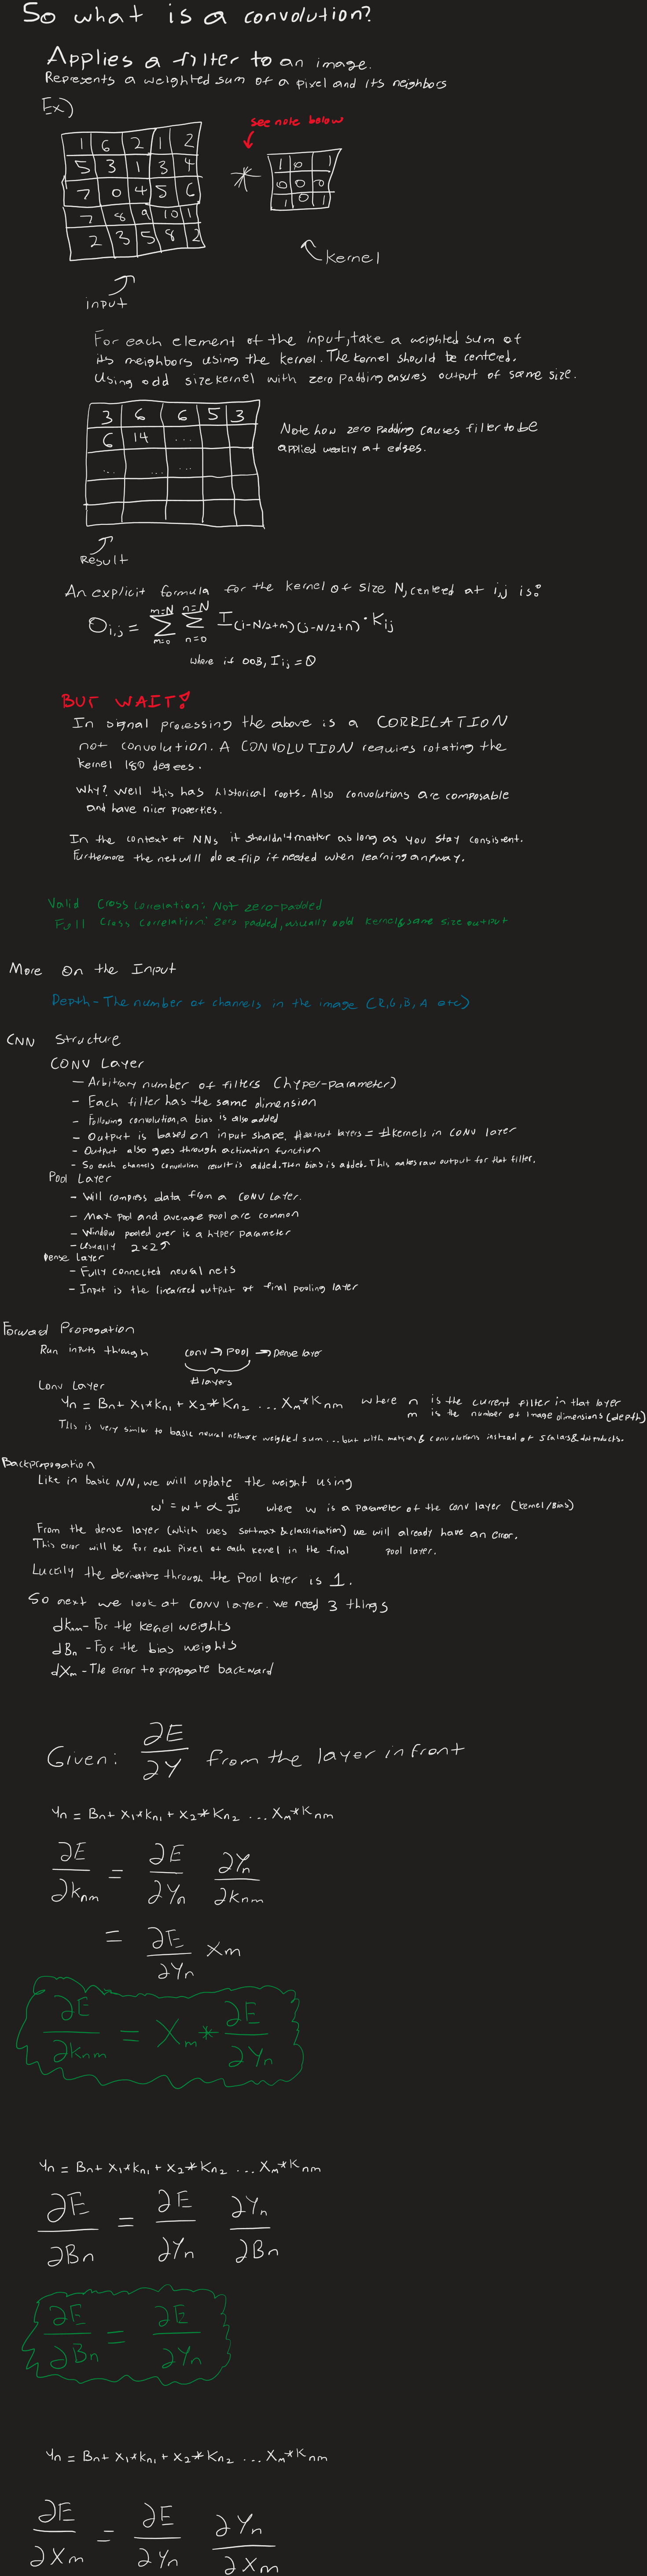 So what is a convolution?
Applies a filter to an image.
Represents a weighted sum of a pixel and its neighbors
Ex)
see note below
1 6 2 1 2
5 3 1 3 4
7 0 4 5 6
7 8 9 10 1
2 3 5 8 2
*
1 0 1
0 0 0
1 0 1
Kernel
input
For each element of the input, take a weighted sum of
its neighbors using the kernel. The kernel should be centered.
Using odd size kernel with zero padding ensures output of same size.
3 6 6 5 3
6 14 ...
... ... ...
Note how zero padding causes filter to be
applied weakly at edges.
Result
An explicit formula for the kernel of size N, centered at i,j is:
O_{i,j} = \sum_{m=0}^{m=N} \sum_{n=0}^{n=N} I_{(i-N/2+m)(j-N/2+n)} \cdot K_{ij}
where if OOB, I_{ij} = 0
BUT WAIT!
In signal processing the above is a CORRELATION
not convolution. A CONVOLUTION requires rotating the
kernel 180 degrees.
Why? Well this has historical roots. Also convolutions are composable
and have nicer properties.
In the context of NNs it shouldn't matter as long as you stay consistent.
Furthermore the net will do a flip if needed when learning anyway.
Valid Cross Correlation: Not zero-padded
Full Cross Correlation: Zero padded, usually odd kernel & same size output
More On the Input
Depth - The number of channels in the image (R,G,B,A etc)
CNN Structure
CONV Layer
- Arbitrary number of filters (hyper-parameter)
- Each filter has the same dimension
- Following convolution, a bias is also added
- Output is based on input shape. #output layers = #kernels in CONV layer
- Output also goes through activation function
- So each channels convolution result is added. Then bias is added. This makes raw output for that filter.
Pool Layer
- Will compress data from a CONV Layer.
- Max Pool and average pool are common
- Window pooled over is a hyper parameter
- Usually 2x2
Dense Layer
- Fully connected neural nets
- Input is the linearized output of final pooling layer
Forward Propogation
Run inputs through conv → Pool → Dense layer
# layers
Conv Layer
Y_n = B_n + X_1 * K_{n1} + X_2 * K_{n2} ... X_m * K_{nm} where n is the current filter in that layer
m is the number of image dimensions (depth)
This is very similar to basic neural network weighted sum... but with matrices & convolutions instead of scalars & dot products.
Backpropagation
Like in basic NN, we will update the weight using
w' = w + α dE/dw where w is a parameter of the conv layer (kernel/bias)
From the dense layer (which uses softmax & classification) we will already have an error.
This error will be for each pixel of each kernel in the final pool layer.
Luckily the derivative through the Pool layer is 1.
So next we look at CONV layer. We need 3 things
dK_{nm} - For the kernel weights
dB_n - For the bias weights
dX_m - The error to propogate backward
Given: ∂E/∂Y from the layer in front
Y_n = B_n + X_1 * K_{n1} + X_2 * K_{n2} ... X_m * K_{nm}
∂E/∂K_{nm} = ∂E/∂Y_n ∂Y_n/∂K_{nm}
= ∂E/∂Y_n X_m
∂E/∂K_{nm} = X_m * ∂E/∂Y_n
Y_n = B_n + X_1 * K_{n1} + X_2 * K_{n2} ... X_m * K_{nm}
∂E/∂B_n = ∂E/∂Y_n ∂Y_n/∂B_n
∂E/∂B_n = ∂E/∂Y_n
Y_n = B_n + X_1 * K_{n1} + X_2 * K_{n2} ... X_m * K_{nm}
∂E/∂X_m = ∂E/∂Y_n ∂Y_n/∂X_m